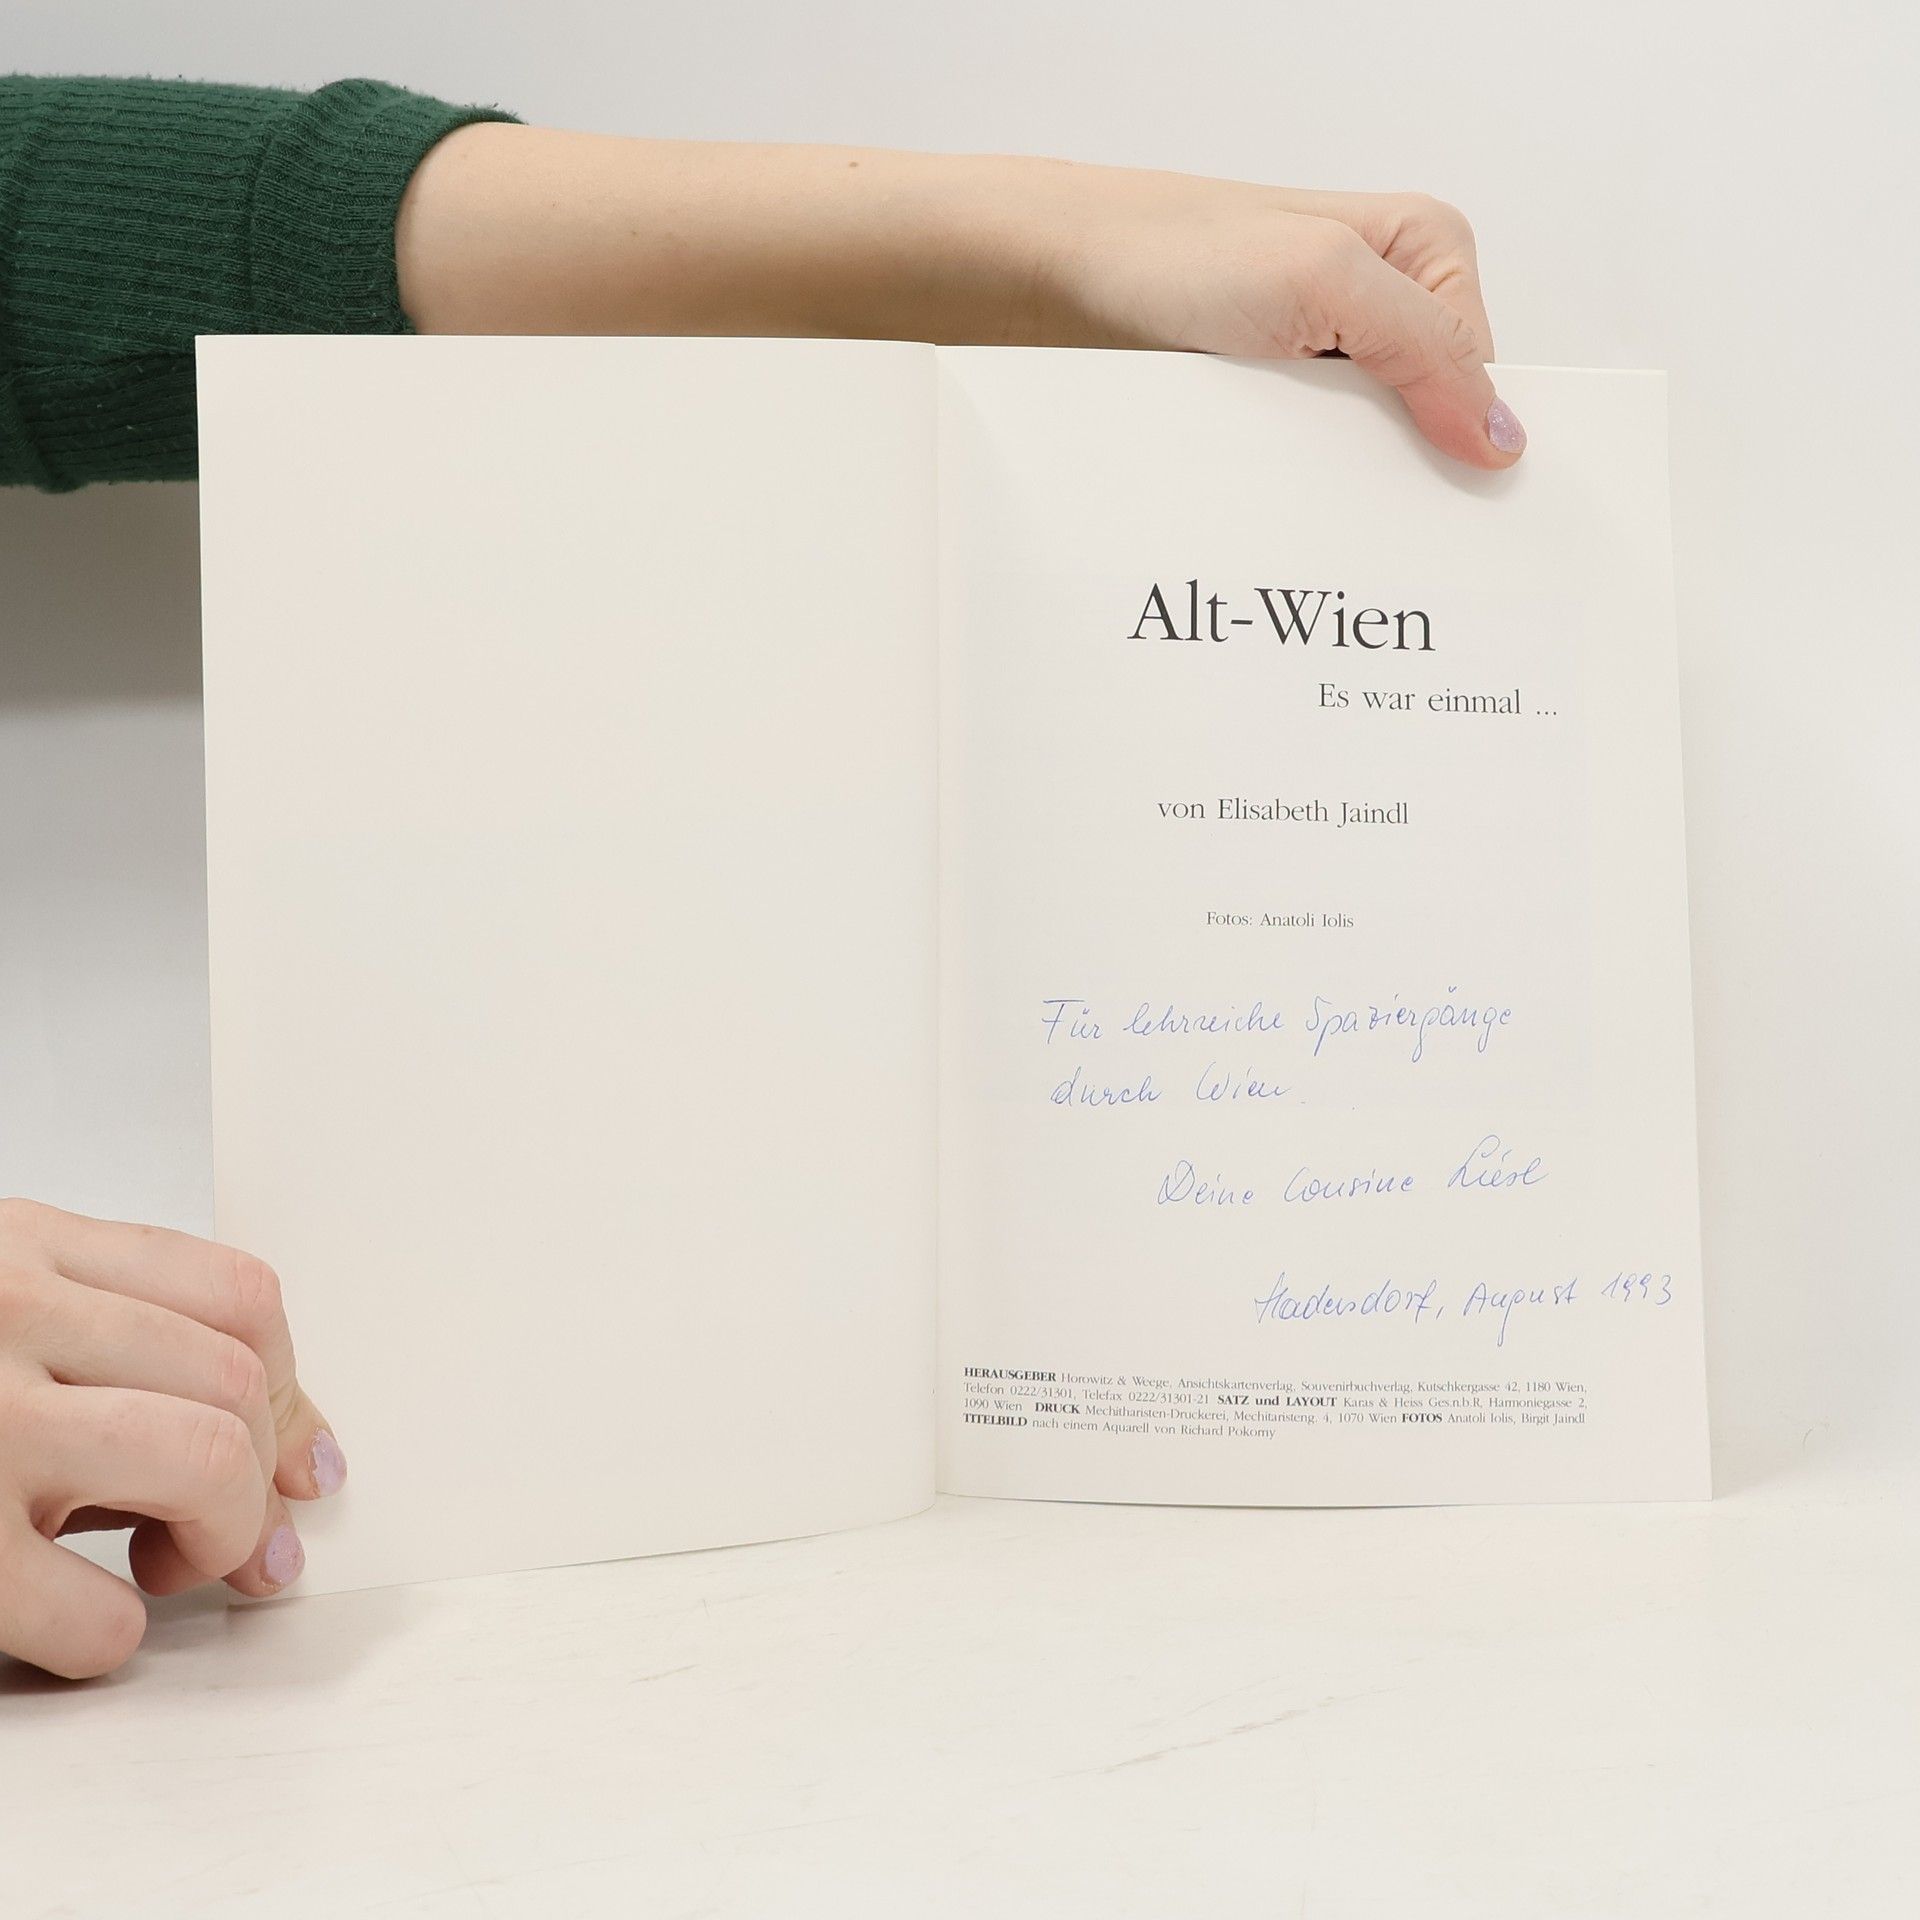 Alt-Wien
Es war einmal ...
von Elisabeth Jaindl
Fotos: Anatoli Iolis
Für lehrreiche Spaziergänge
durch Wien.
Deine Cousine Liesl
Hadersdorf, August 1993
HERAUSGEBER Horowitz & Weege, Ansichtskartenverlag, Souvenirbuchverlag, Kutschkergasse 42, 1180 Wien,
Telefon 0222/31301, Telefax 0222/31301-21 SATZ und LAYOUT Karas & Heiss Ges.n.b.R, Harmoniegasse 2,
1090 Wien DRUCK Mechitharisten-Druckerei, Mechitaristeng. 4, 1070 Wien FOTOS Anatoli Iolis, Birgit Jaindl
TITELBILD nach einem Aquarell von Richard Pokorny